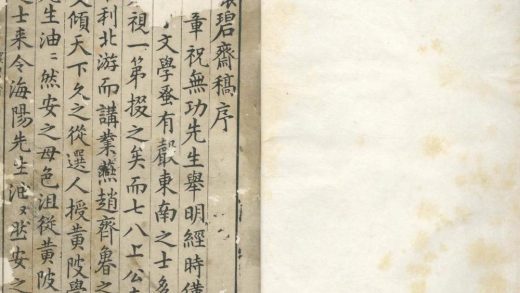 碧齋稿序
章祝無功先生舉明經時僕
文學蚤有聲東南之士多
視一第掇之矣而七八上公
利北游而講業燕趙齊魯之
文傾天下久之從選人授黃陂學
先生油〻然安之毋色沮從黃陂
士来令海陽先生油〻然安之